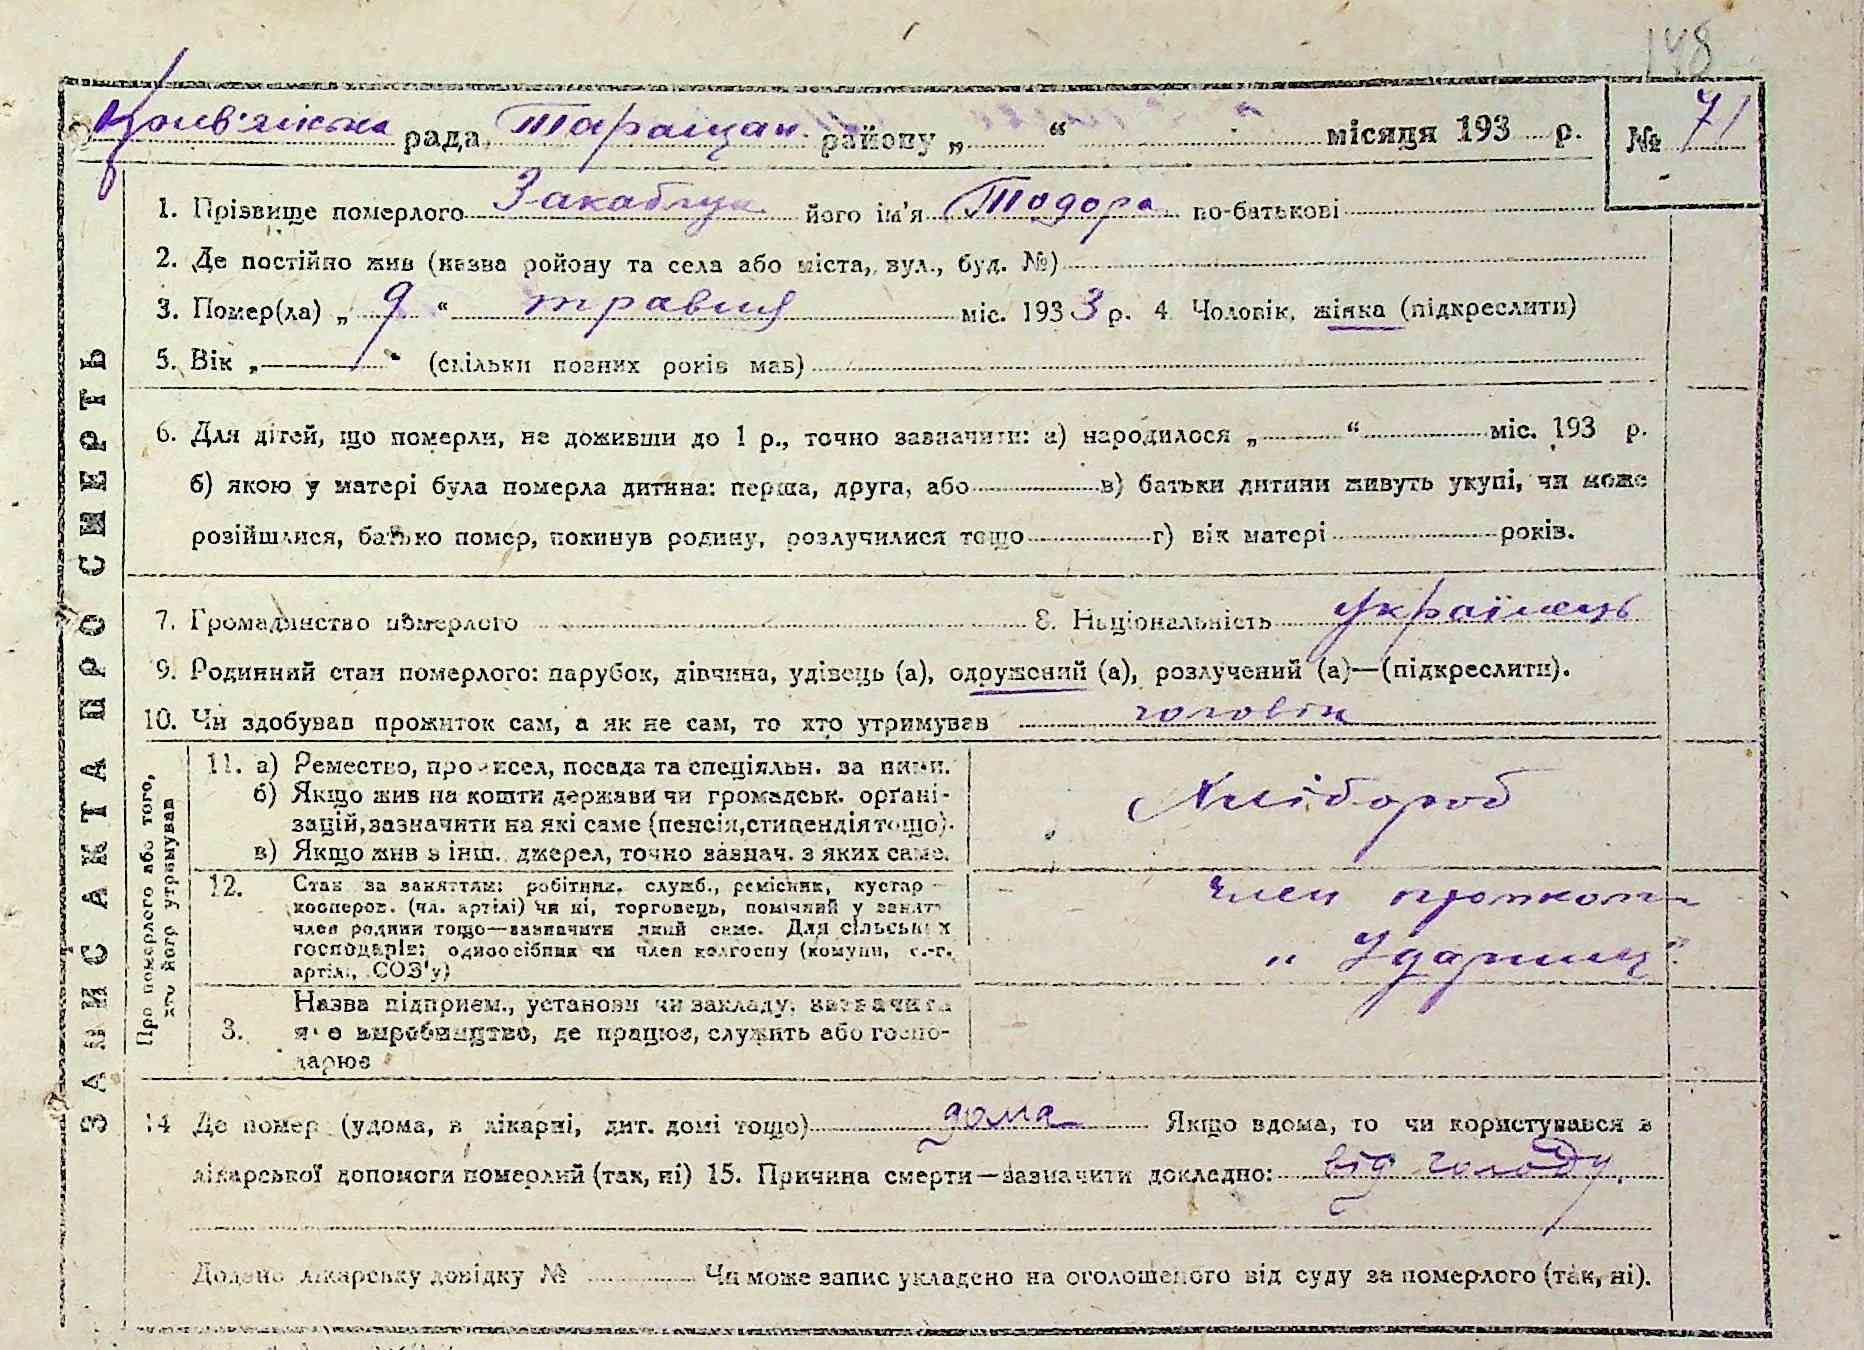 148
Крив'янська рада Таращан. району „ “ місяця 193 р. № 71
1. Прізвище померлого Закаблук його ім'я Тодора по-батькові
2. Де постійно жив (назва ройону та села або міста, вул., буд. №)
3. Помер(ла) „ 9 “ травня міс. 1933 р. 4 Чоловік, жінка (підкреслити)
5. Вік „ “ (скільки повних років мав)
6. Для дітей, що померли, не доживши до 1 р., точно зазначити: а) народилося „ “ міс. 193 р.
б) якою у матері була померла дитина: перша, друга, або в) батьки дитини живуть укупі, чи може
розійшлися, батько помер, покинув родину, розлучилися тощо г) вік матері років.
7. Громадянство померлого 8. Національність українець
9. Родинний стан померлого: парубок, дівчина, удівець (а), одружений (а), розлучений (а)—(підкреслити).
10. Чи здобував прожиток сам, а як не сам, то хто утримував чоловік
ЗАПИС АКТА ПРО СМЕРТЬ
Про померлого або того,
хто його утримував
11. а) Ремество, промисел, посада та спеціяльн. за ними.
б) Якщо жив на кошти держави чи громадськ. органі-
зацій, зазначити на які саме (пенсія, стипендія тощо).
в) Якщо жив з інш. джерел, точно зазнач. з яких саме.
Хлібороб
12. Стан за заняттям: робітник, служб., ремісник, кустар
кооперов. (чл. артілі) чи ні, торговець, помічний у занятт
член родини тощо—зазначити який саме. Для сільських
господарів: одноосібник чи член колгоспу (комуни, с.-г.
артілі, СОЗ'у)
член
„ Ударниц“
3. Назва підприєм., установи чи закладу, зазначити
яке виробництво, де працює, служить або госпо-
дарює
14 Де помер (удома, в лікарні, дит. домі тощо) дома Якщо вдома, то чи користувався з
лікарської допомоги померлий (так, ні) 15. Причина смерти—зазначити докладно: від голоду
Додано лікарську довідку № Чи може запис укладено на оголошеного від суду за померлого (так, ні).